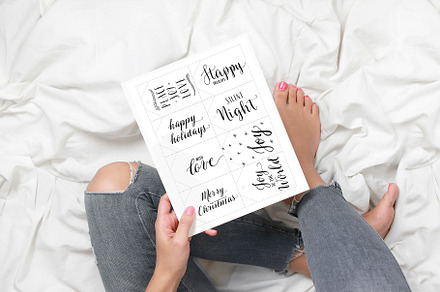 Happy
SILENT
Night
happy
holidays
Joy
with
love
Joy
TO THE
World
Merry
Christmas